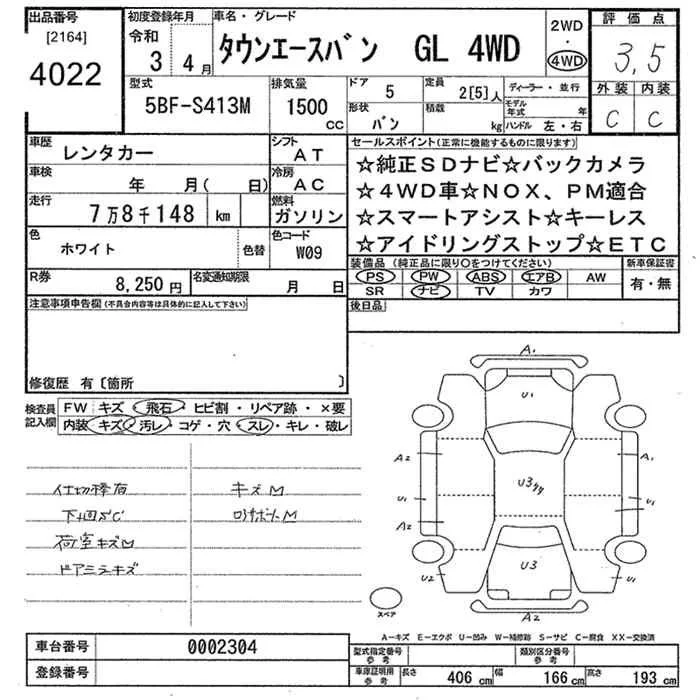 出品番号
[2164]
4022
初度登録年月
令和
3 4月
車名・グレード
タウンエースバン GL 4WD
2WD
・
4WD
評価点
3,5
外装 内装
C C
型式
5BF-S413M
排気量
1500
CC
ドア
5
定員
2[5]人
ディーラー・並行
形状
バン
積載
kg
モデル年式
年
ハンドル 左・右
車歴
レンタカー
シフト
AT
車検
年 月( 日)
冷房
AC
走行
7万8千148 km
燃料
ガソリン
色
ホワイト
色替
色コード
W09
R券
8,250円
名変通知期限
月 日
セールスポイント(正常に機能するものに限ります)
☆純正SDナビ☆バックカメラ
☆4WD車☆NOX、PM適合
☆スマートアシスト☆キーレス
☆アイドリングストップ☆ETC
装備品(純正品に限り○をつけてください)
PS PW ABS エアB AW
SR ナビ TV カワ
新車保証書
有・無
後日品
注意事項申告欄(不具合内容等は具体的に記入して下さい)
修復歴 有〔箇所 〕
検査員
記入欄
FW キズ・飛石・ヒビ割・リペア跡・×要
内装 キズ・汚レ・コゲ・穴・スレ・キレ・破レ
仕切棒有
下回サビC
荷室キズM
ドアミラーキズ
キズM
A1
U1
A2
A1
U3
U1
U1
A2
U2
U3
U1
A2
スペア
A−キズ E−エクボ U−凹み W−補修跡 S−サビ C−腐食 XX−交換済
車台番号
0002304
登録番号
型式指定番号
参考
類別区分番号
参考
車庫証明用
参考
長さ
406 cm
幅
166 cm
高さ
193 cm